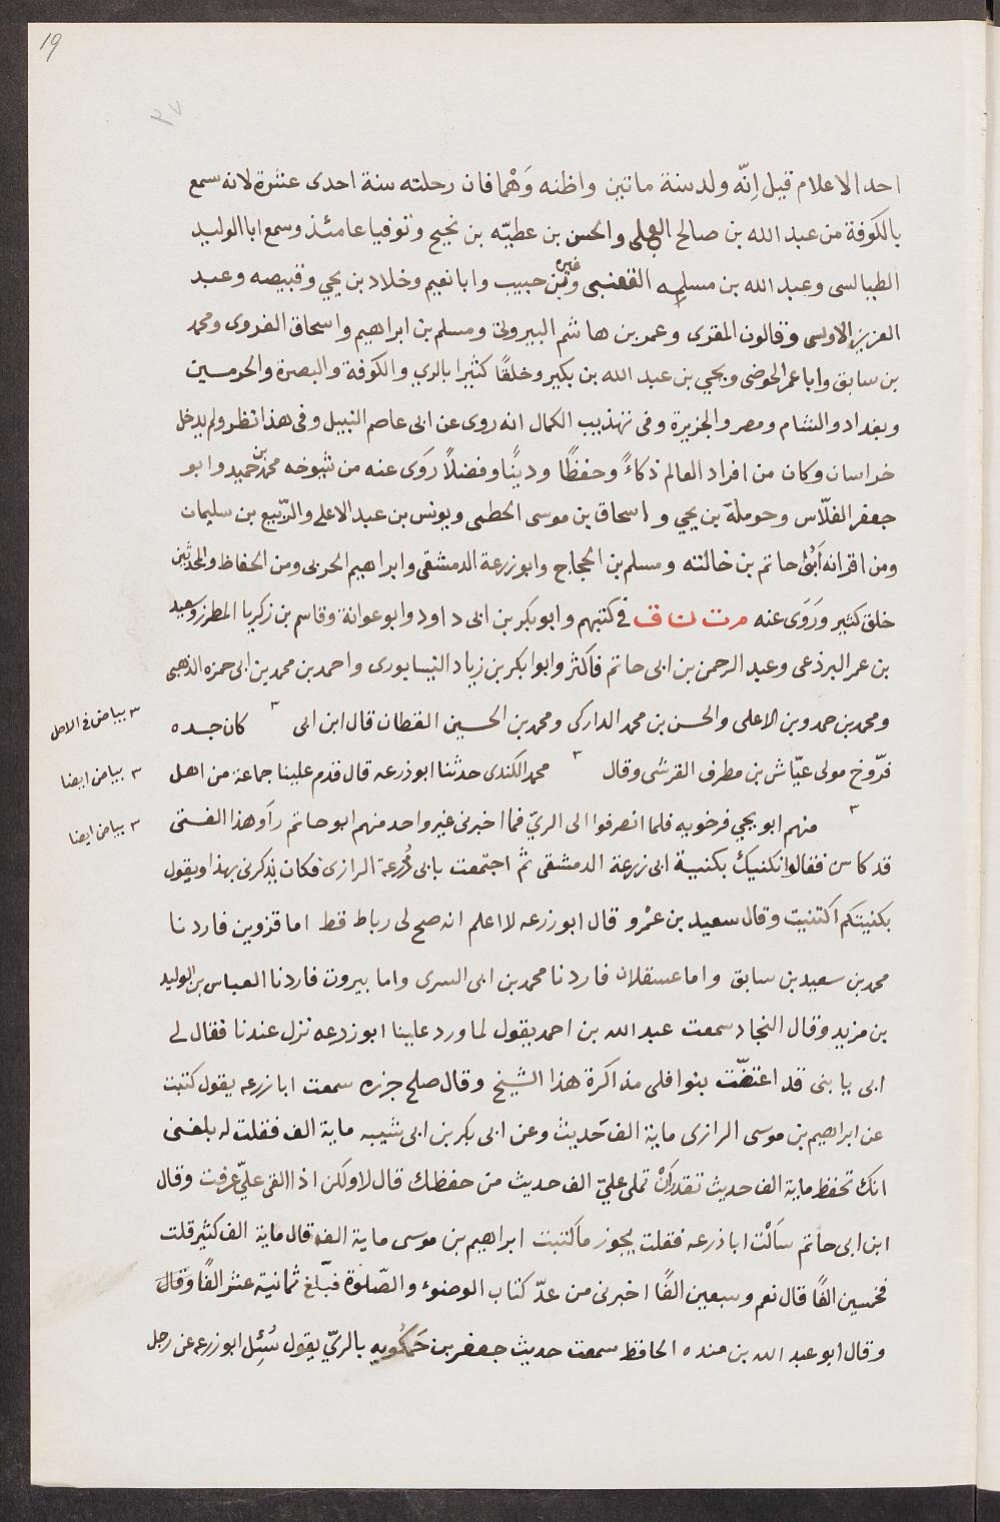 19
٣٧
احد الاعلام قيل اِنّه ولد سنة ماتين واظنه وَهْما فان رحلته سنة احدى عشرة لانه سمع
بالكوفة من عبد الله بن صالح العجلى والحسن بن عطيّه بن نجيح وتوفيا عامئذ وسمع ابا الوليد
الطيالسى وعبد الله بن مسلمه القعنبى وقرة بن حبيب وابا نعيم وخلاد بن يحي وقبيصه وعبد
العزيز الاويسى وقالون المقرى وعمر بن هاشم البيروتى ومسلم بن ابراهيم واسحاق الفروى ومحمد
بن سابق وابا عمر الحوضى ويحي بن عبد الله بن بكير وخلقًا كثيرا بالري والكوفة والبصرة والحرمسين
وبغداد والشام ومصر والجزيرة وفى تهذيب الكمال انه روى عن ابى عاصم النبيل وفى هذا نظر ولم يدخل
خراسان وكان من افراد العالم ذكاءً وحفظًا ودينًا وفضلاً رَوَى عنه من شيوخه محمد بن حميد وابو
جعفر الفلّاس وحرملة بن يحي واسحاق بن موسى الخطمى ويونس بن عبد الاعلى والرّبيع بن سليمان
ومن اقرانه اَبُو حاتم بن خالته ومسلم بن الحجاج وابو زرعة الدمشقى وابراهيم الحربى ومن الحفاظ والمحدثين
خلق كثير ورَوَى عنه م ت ن ق في كتبهم وابو بكر بن ابى داود وابو عوانة وقاسم بن زكريا المطرز وسعيد
بن عمر البرذعى وعبد الرحمن بن ابى حاتم فاكثر وابوا بكر بن زياد النيسابورى واحمد بن محمد بن ابى حمزه الذهبى
ومحمد بن حمدوبن الاعلى والحسن بن محمد الداركى ومحمد بن الحسين القطان قال ابن ابى ٣ كان جده
٣ بياض فى الاصل
فرّوخ مولى عيّاش بن مطرف القرشى وقال ٣ محمد الكندى حدثنا ابو زرعه قال قدم علينا جماعة من اهل
٣ بياض ايضا
٣ منهم ابو يحي فرخويه فلما انصرفوا الى الريّ فما اخبرنى غير واحد منهم ابو حاتم رآو هذا الفتى
٣ بياض ايضا
قد كاس فقالوا نكنيك بكنية ابى زرعة الدمشقى ثم اجتمعت بابى زُرعة الرازى فكان يذكرنى بهذا ويقول
بكنيتكم اكتنيت وقال سعيد بن عمْرو قال ابو زرعه لا اعلم انه صح لى رباط قط اما قزوين فاردنا
محمد بن سعيد بن سابق واما عسقلان فاردنا محمد بن ابى السرى واما بيروت فاردنا العباس بن الوليد
بن مزيد وقال النجاد سمعت عبد الله بن احمد يقول لما ورد علينا ابو زرعه نزل عندنا فقال لى
ابى يا بنى قد اعتضّت بنوافلى مذاكرة هذا الشيخ وقال صلح جزره سمعت ابا زرعه يقول كتبت
عن ابراهيم بن موسى الرازى ماية الف حَديث وعن ابى بكر بن ابى شيبه ماية الف فقلت له بلغنى
انك تحفظ ماية الف حديث تقدر اَنْ تملى عليّ الف حديث من حفظك قال لا ولكن اذا القى عليّ عرفت وقال
ابن ابى حاتم سَألْت ابا ذرعه فقلت يجوز ما كتبت ابراهيم بن موسى ماية الف قال ماية الف كثير قلت
فخمسين الفًا قال نعم وسبعين الفًا اخبرنى من عدّ كتاب الوضوء والصّلوة فبلّغ ثمانية عشر الفًا وَقال
وقال ابو عبد الله بن منده الحافظ سمعت حديث جعفر بن حَمكُويه بالريّ يقول سُئِل ابو زرعه عن رجل